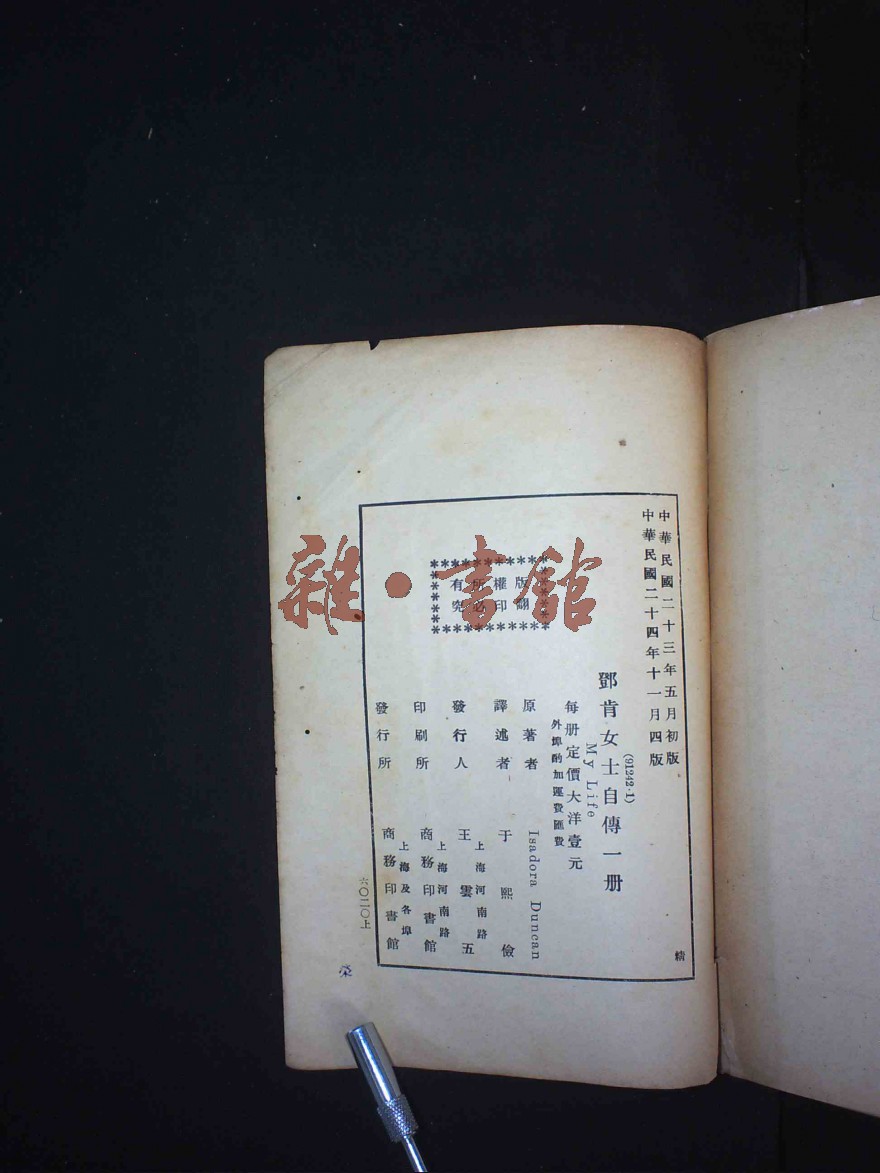 中華民國二十三年五月初版
中華民國二十四年十一月四版
(91242·1)
鄧肯女士自傳一册
My Life
每册定價大洋壹元
外埠酌加運費匯費
版權所有
翻印必究
原著者 Isadora Duncan
譯述者 于熙儉
發行人 王雲五
上海河南路
印刷所 商務印書館
上海河南路
發行所 商務印書館
上海及各埠
精
六〇一一〇上
雜·書館